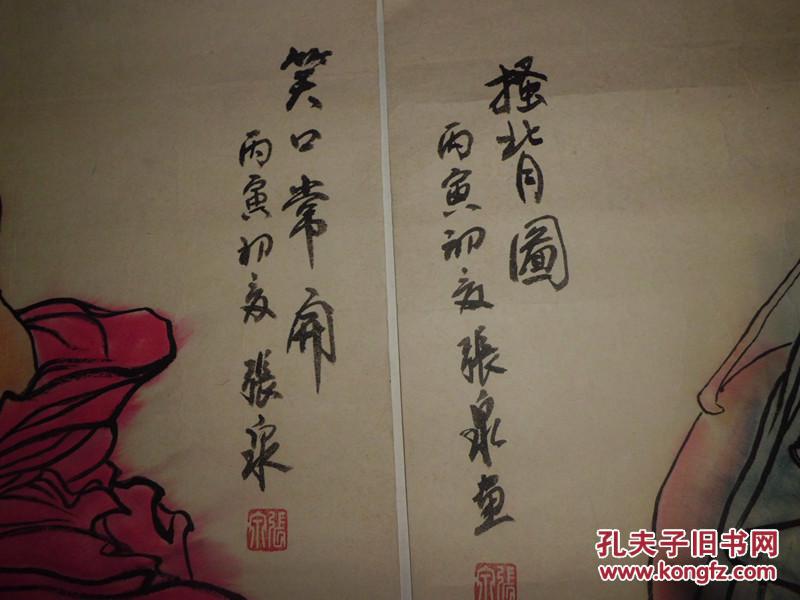 搔背圖
丙寅初夏張泉画
張泉
笑口常開
丙寅初夏張泉
張泉
孔夫子旧书网
www.kongfz.com